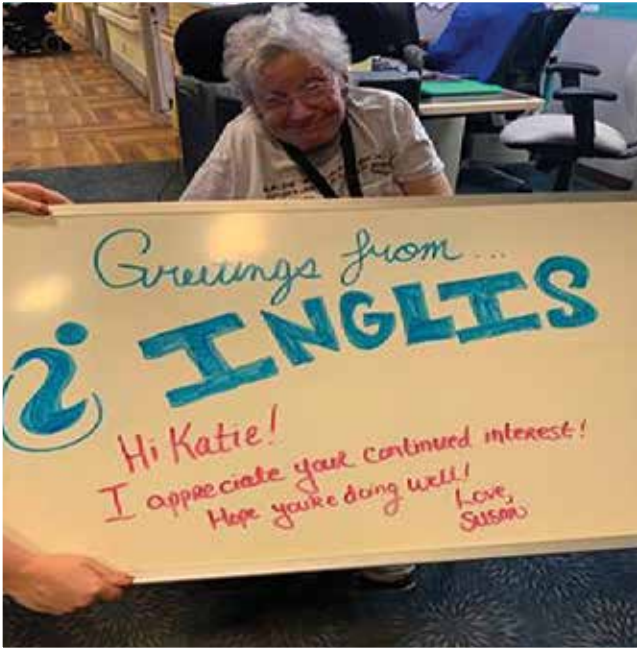 Greetings from...
i INGLIS
Hi Katie!
I appreciate your continued interest!
Hope you're doing well!
Love,
Susan